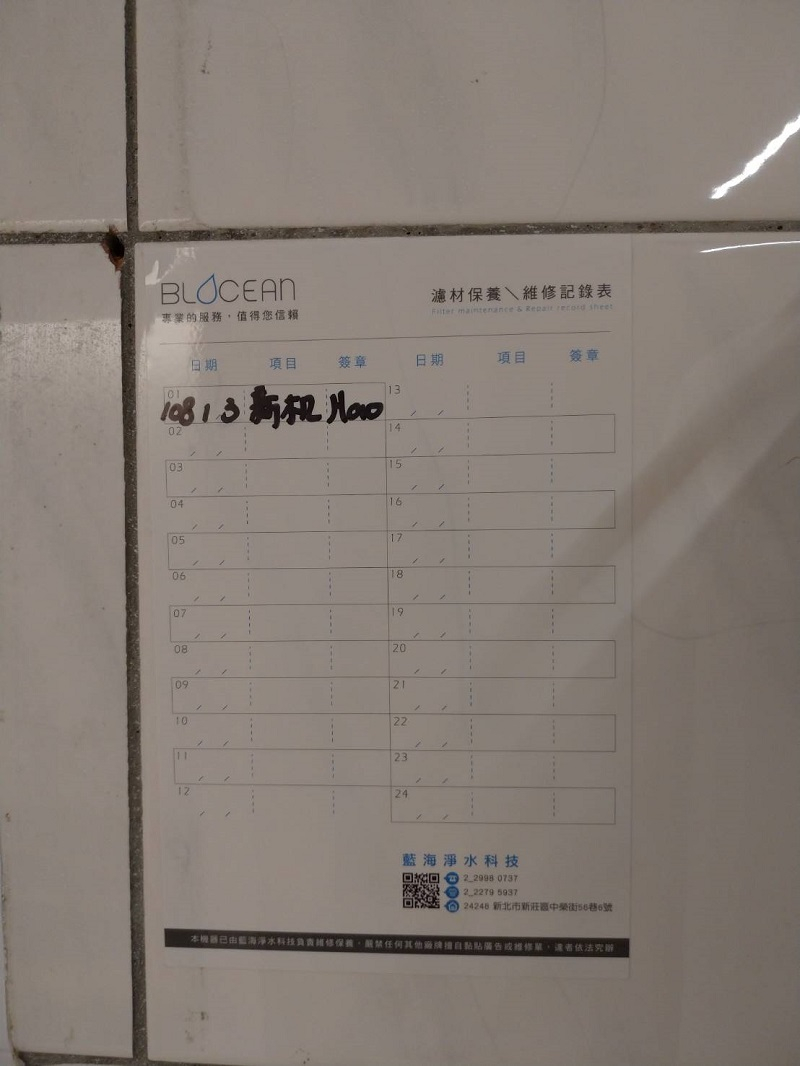 BLOCEAN
專業的服務，值得您信賴
濾材保養＼維修記錄表
Filter maintenance & Repair record sheet
日期 項目 簽章 日期 項目 簽章
01 108 1 3 新机 Hao 13 / /
02 / / 14 / /
03 / / 15 / /
04 / / 16 / /
05 / / 17 / /
06 / / 18 / /
07 / / 19 / /
08 / / 20 / /
09 / / 21 / /
10 / / 22 / /
11 / / 23 / /
12 / / 24 / /
藍海淨水科技
2_2998 0737
2_2279 5937
24248 新北市新莊區中榮街58巷6號
本機器已由藍海淨水科技負責維修保養，嚴禁任何其他廠牌擅自黏貼廣告或維修單，違者依法究辦